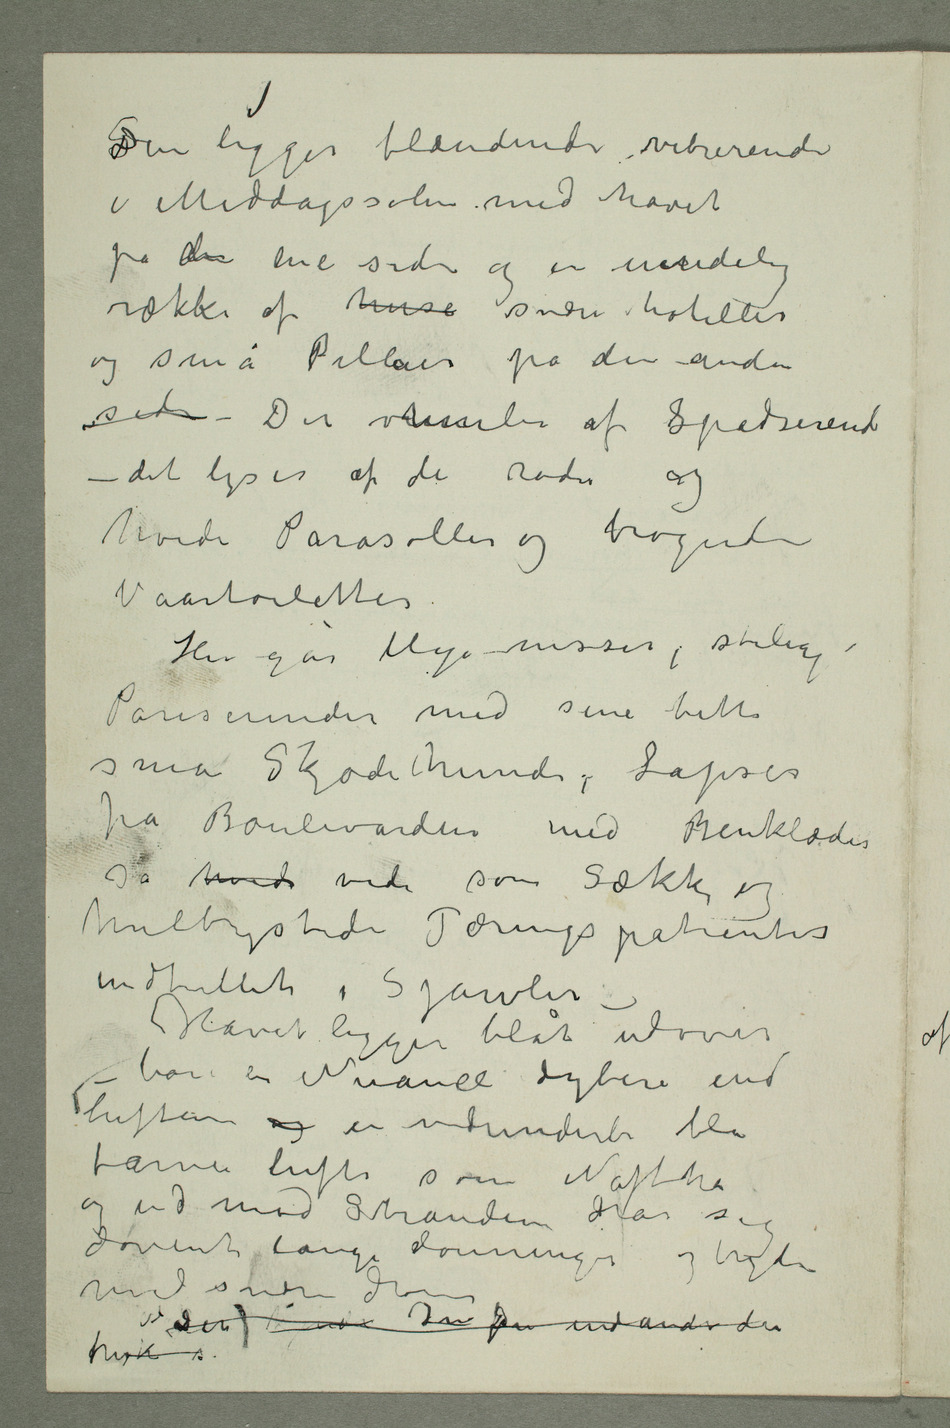 Den ligger blændende vibrerende
i Middagssolen med havet
på den ene side og en uendelig
række af huse svære hoteller
og små Pillaer på den anden
side – Der vrimler af Spadserende
– det lyser af de røde og
hvide Parasoller og brogede
Vaartoiletter.
Her går Engelske misser, stilige
Pariserinder med sine bitte
små Skjødehunde, Lapser
fra Boulevarden med Benklæder
så hvide vide som Sække og
hulbrystede Tæringspatienter
indtullet i Sjawler –
Havet ligger blåt udover
– bare en Nuance dybere end
luften og en vidunderlig blå
farve luftig som Naftha
og ind mod Stranden drar sig
dovent lange dønninger og bryder
med svære drøn